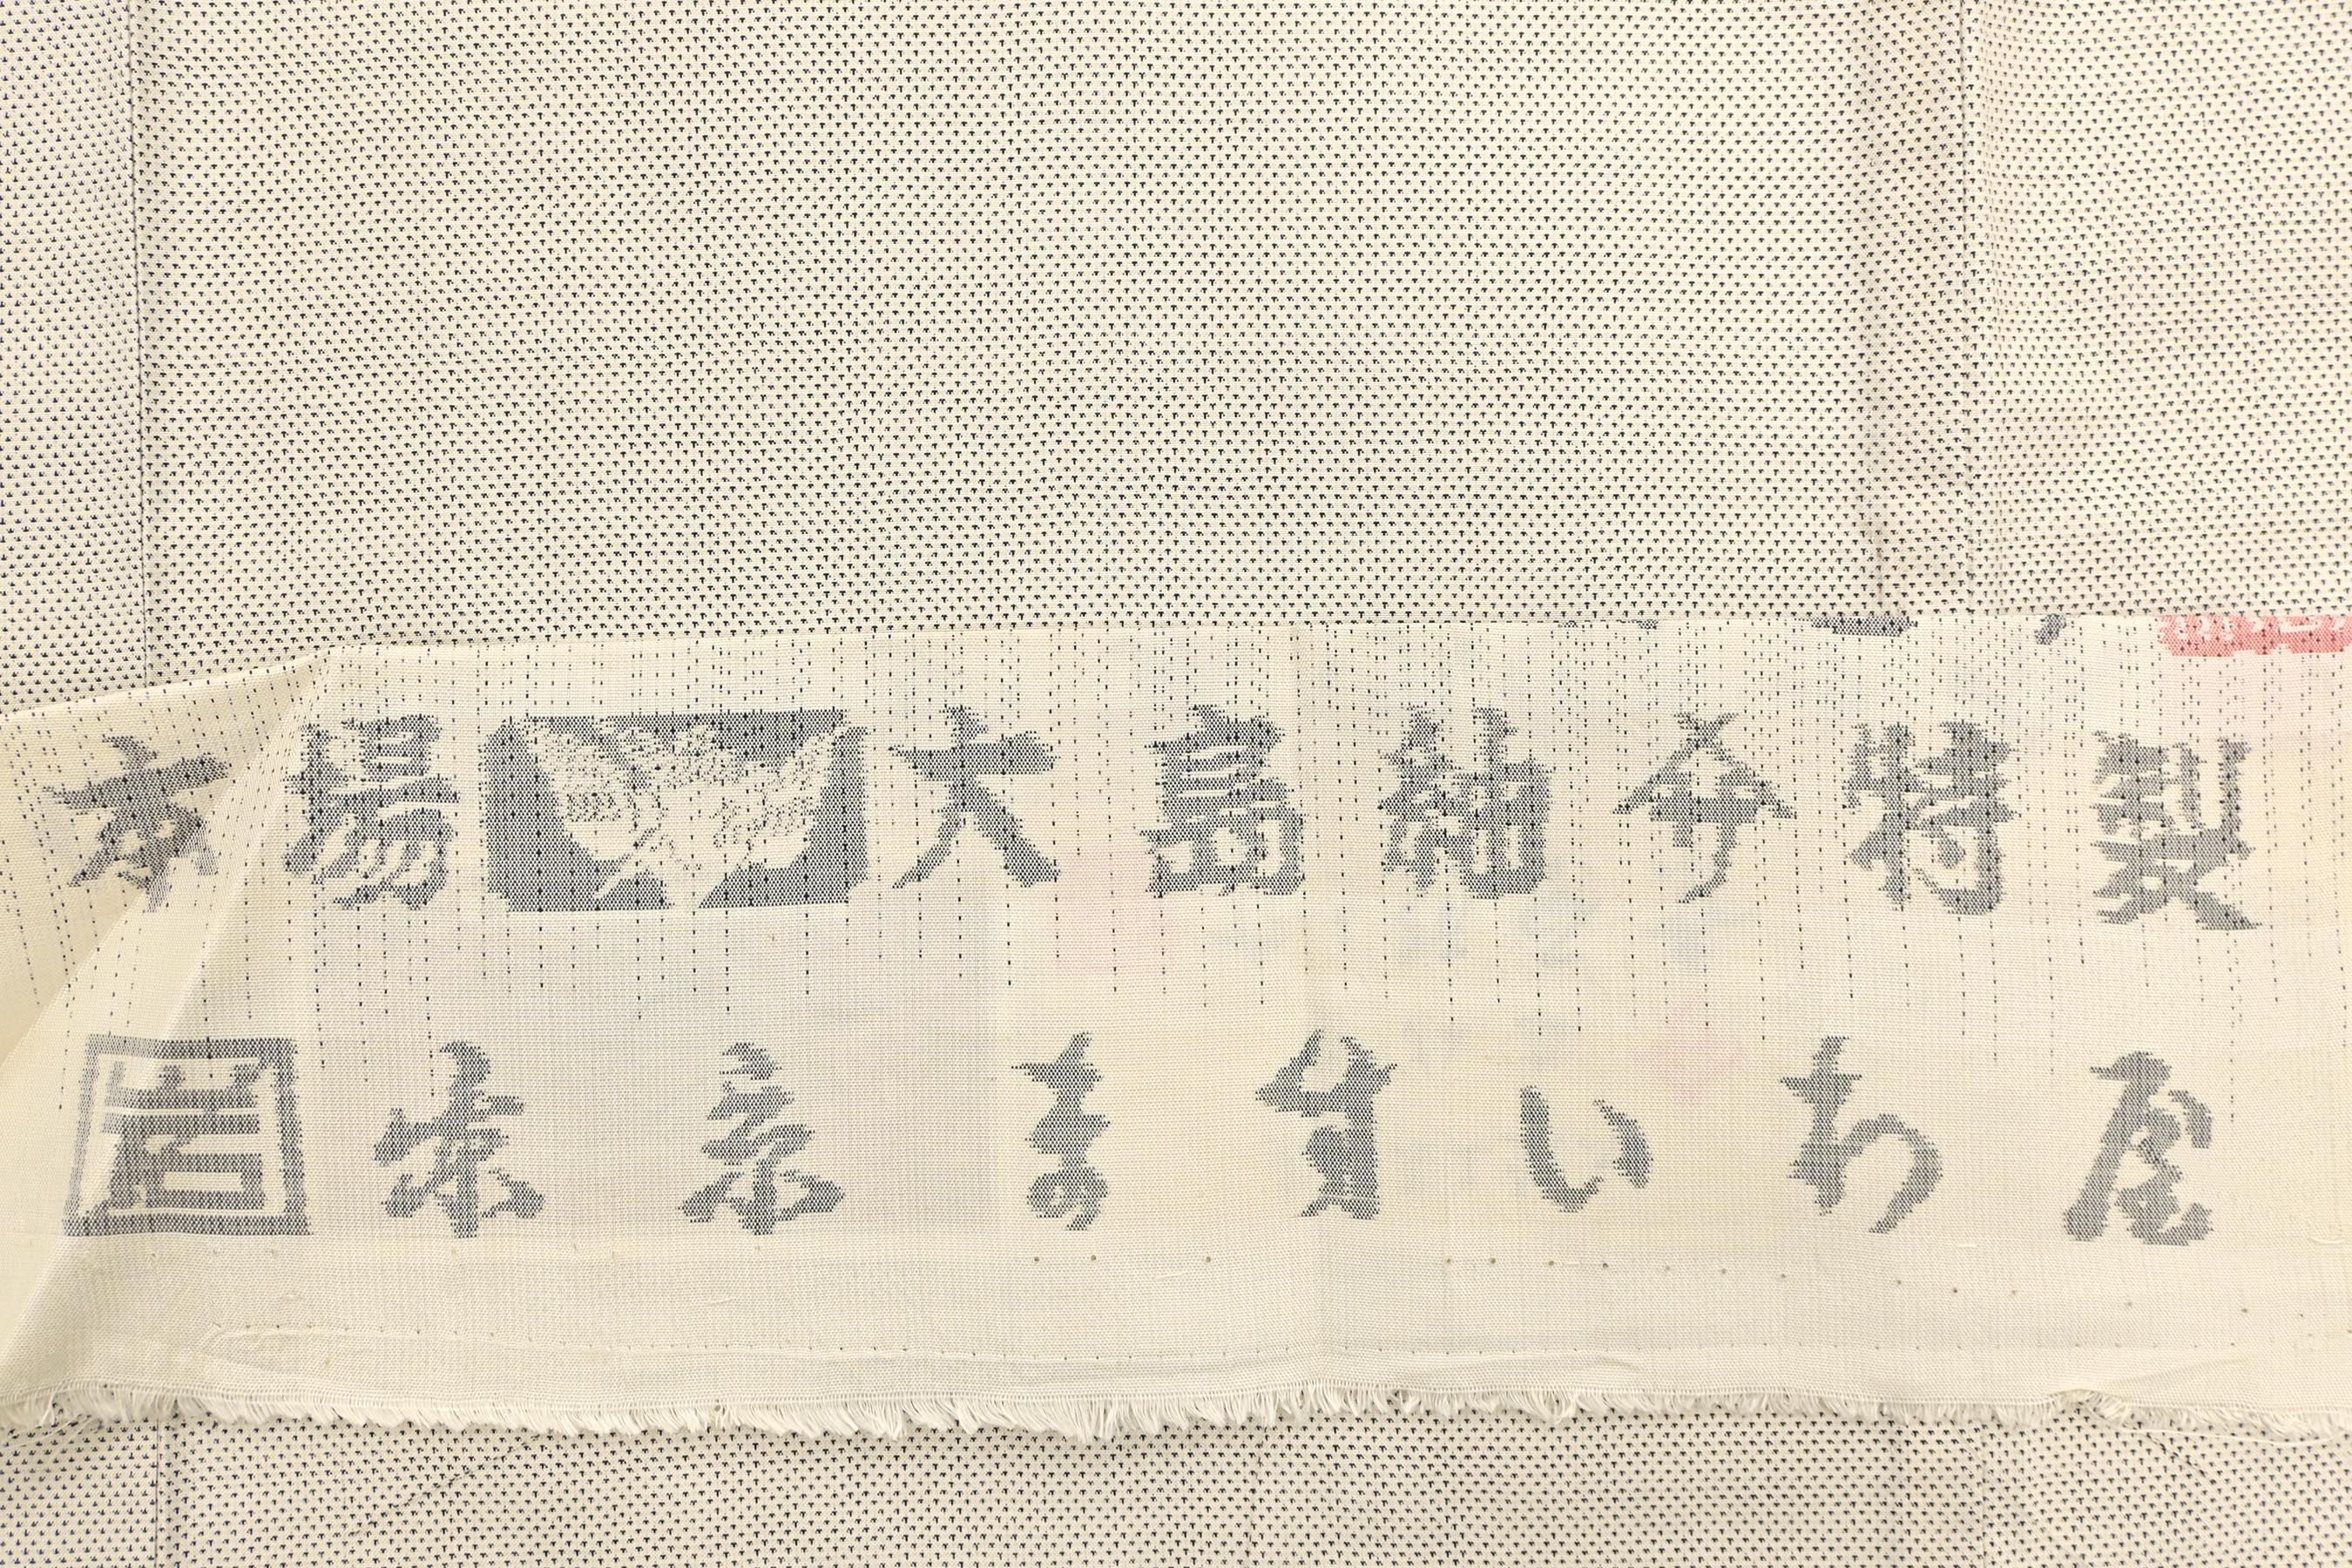 本場 大島紬 特製
東京 ますいわ屋